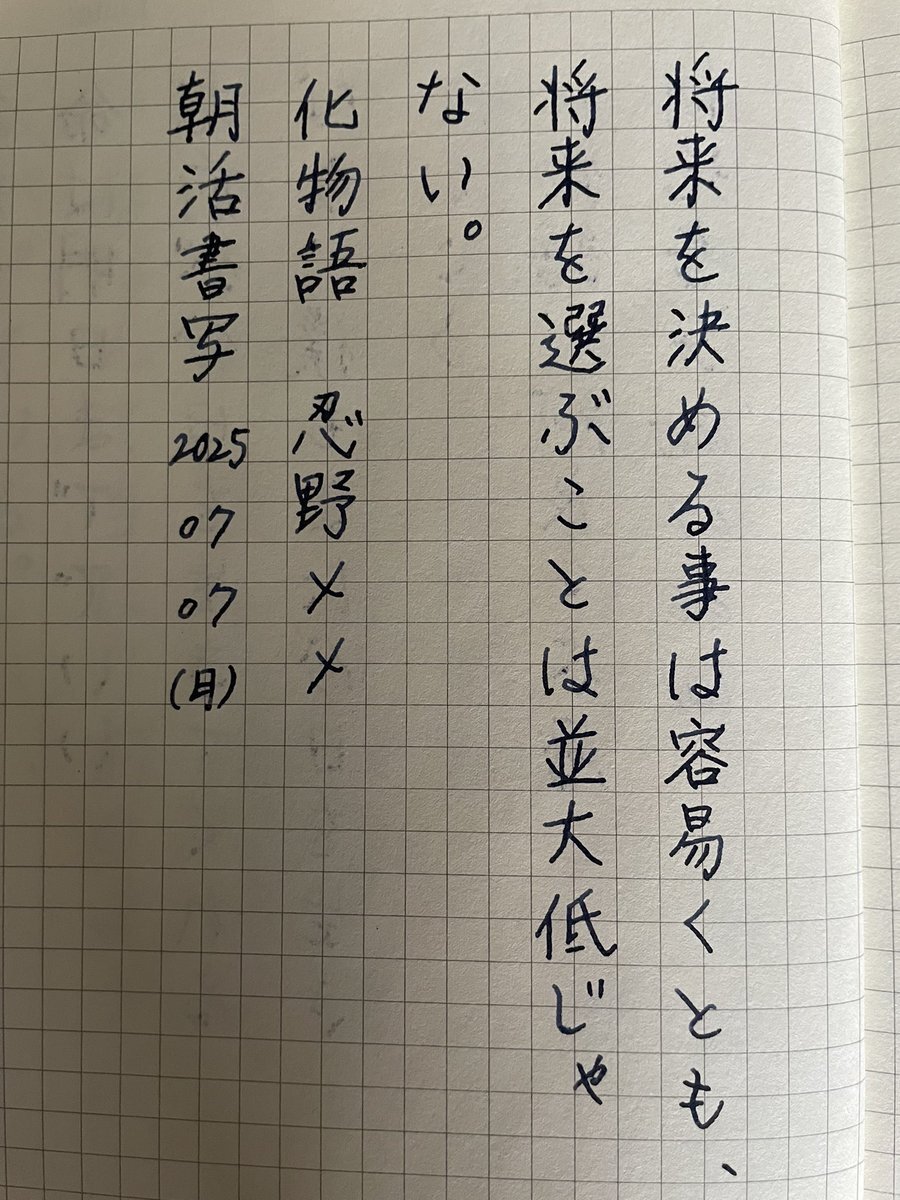 将来を決める事は容易くとも、
将来を選ぶことは並大低じゃ
ない。
化物語 忍野メメ
朝活書写 2025 07 07 (月)